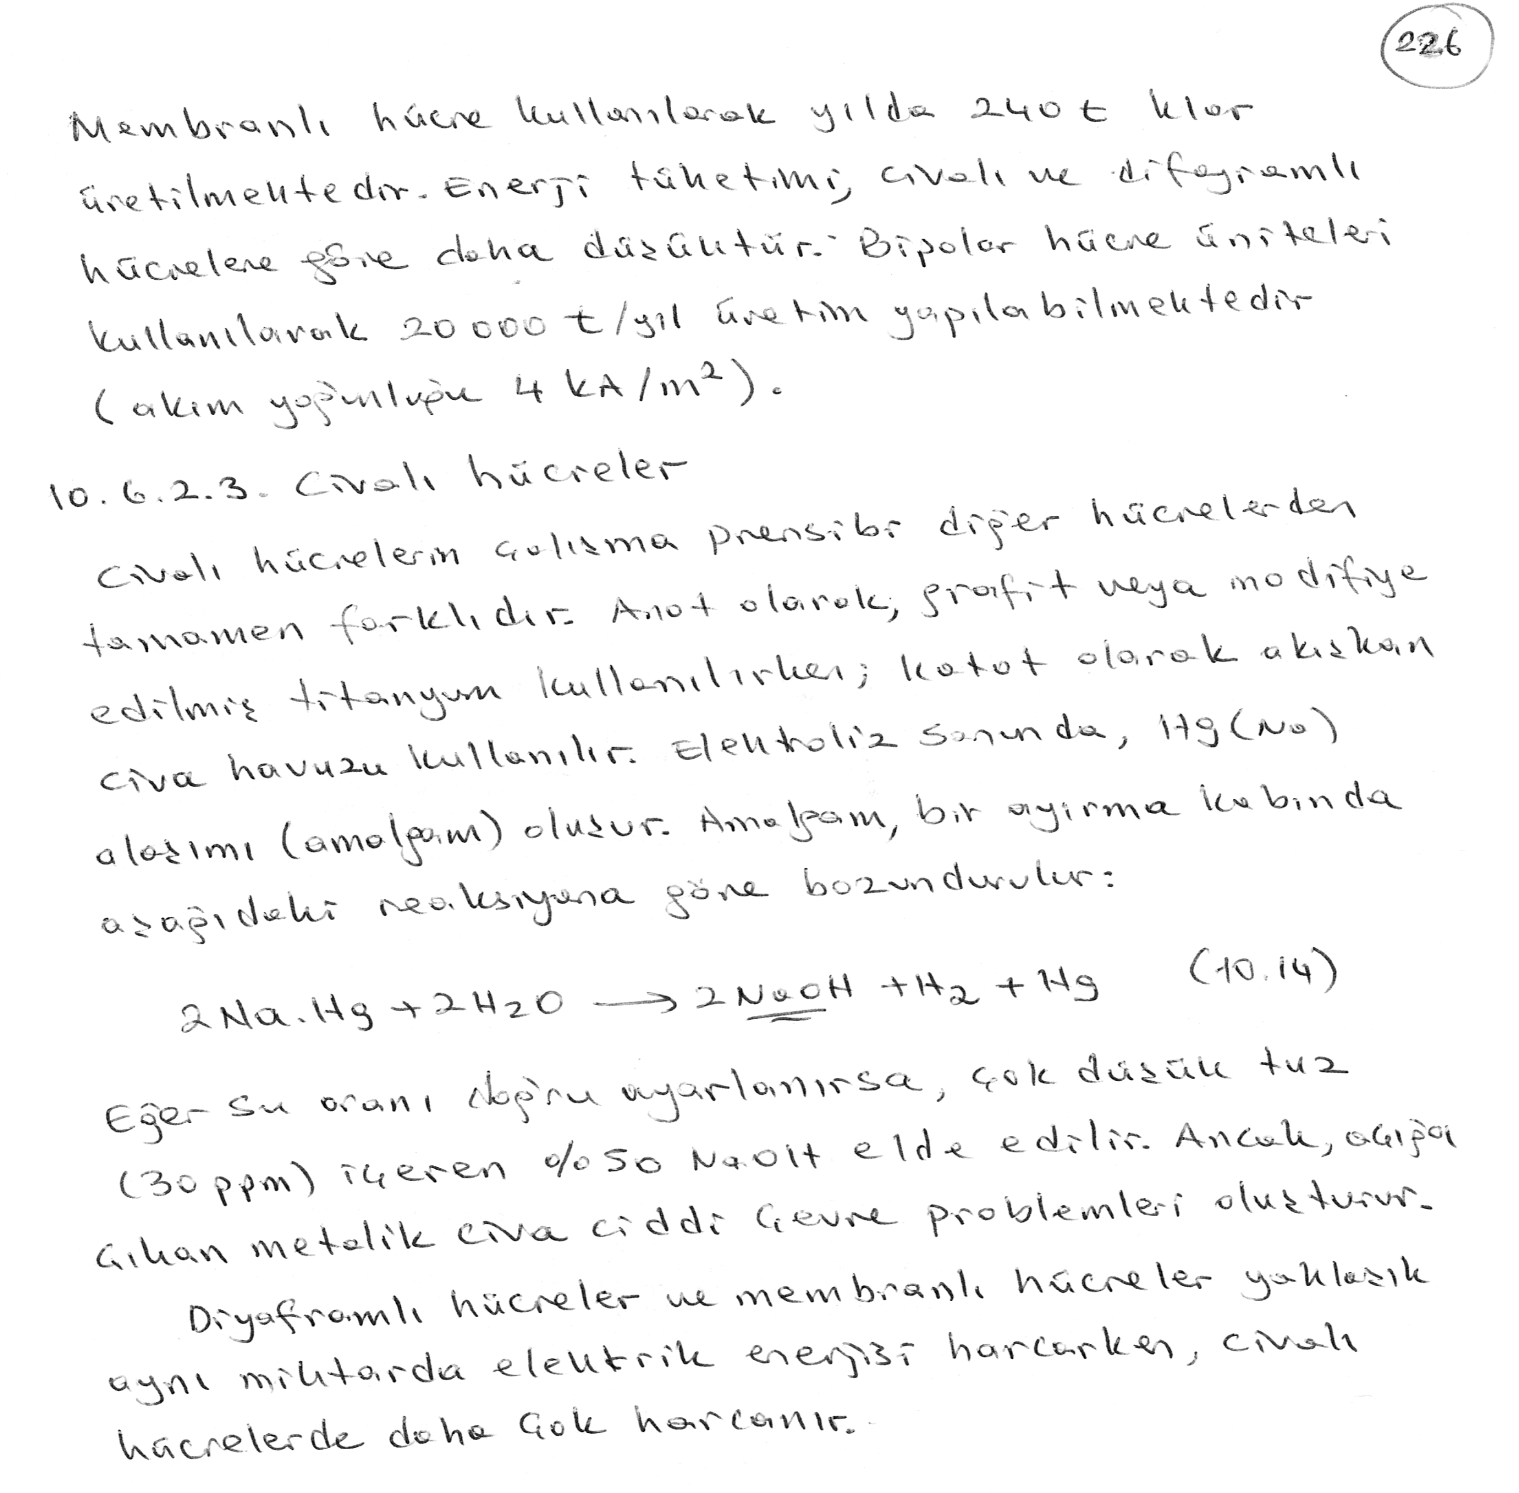 226
Membranlı hücre kullanılarak yılda 240 t klor
üretilmektedir. Enerji tüketimi, civalı ve difagramlı
hücrelere göre daha düşüktür. Bipolar hücre üniteleri
kullanılarak 20 000 t/yıl üretim yapılabilmektedir
(akım yoğunluğu 4 kA/m²).
10.6.2.3. Civalı hücreler
Civalı hücrelerin çalışma prensibi diğer hücrelerden
tamamen farklıdır. Anot olarak, grafit veya modifiye
edilmiş titanyum kullanılırken; katot olarak akışkan
civa havuzu kullanılır. Elektroliz sonunda, Hg(Na)
alaşımı (amalgam) oluşur. Amalgam, bir ayırma kabında
aşağıdaki reaksiyona göre bozundurulur:
2Na.Hg + 2H₂O → 2NaOH + H₂ + Hg (10.14)
Eğer su oranı doğru ayarlanırsa, çok düşük tuz
(30 ppm) içeren %50 NaOH elde edilir. Ancak, açığa
çıkan metalik civa ciddi çevre problemleri oluşturur.
Diyaframlı hücreler ve membranlı hücreler yaklaşık
aynı miktarda elektrik enerjisi harcarken, civalı
hücrelerde daha çok harcanır.